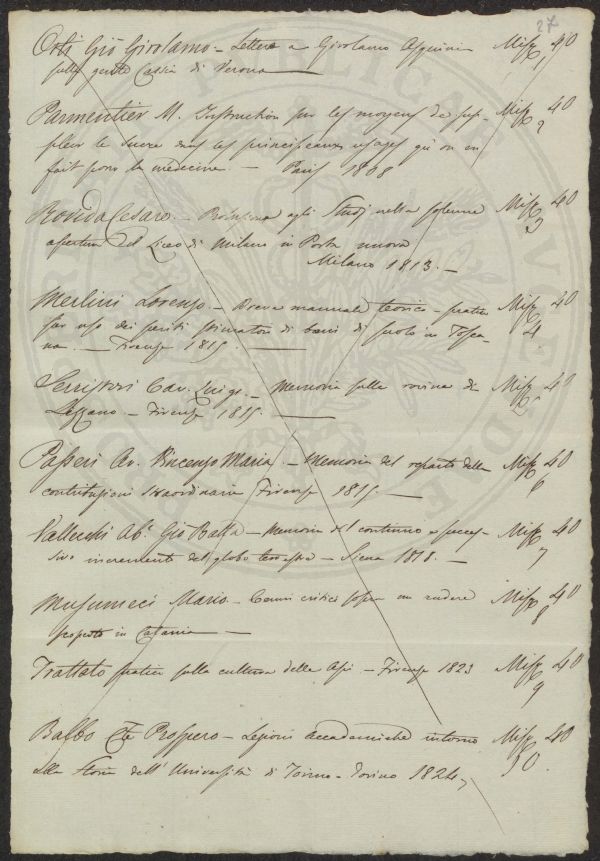 27
Orti Giō Girolamo - Lettera a Girolamo Asquini Misc 40
sulla gente Cassia di Verona 1
Parmentier M. Instruction sur les moyens de sup- Misc 40
pleer le Sucre dans les principeaux usages qu'on en 2
fait pour la medecine - Paris 1808
Rovida Cesare - Prolusione agli Studj nella solenne Misc 40
apertura del Liceo di Milano in Porta nuova 3
Milano 1813. -
Merlini Lorenzo - Breve manuale teorico-pratico Misc 40
per uso dei periti stimatori di beni di suolo in Tosca- 4.
na. - Firenze 1815.
Serristori Cav. Luigi - Memoria sulla rovina di Misc 40
- Firenze 1815. - 5
Passeri Av. Vincenzo Maria - Memoria del reparto delle Misc 40
contribuzioni straordinarie Firenze 1815 - 6
Vallecchi Ab. Giō Batta - Memoria del continuo e succes- Misc 40
sivo incremento del globo terrestre - Siena 1818. - 7
Musumeci Mario - Cenni critici sopra un rudere Misc 40
scoperto in Catania - 8
Trattato pratico sulla cultura delle Api - Firenze 1823 Misc 40
9
Balbo Cte Prospero - Lezioni accademiche intorno Misc 40
alla Storia dell'Università di Torino - Torino 1824, 10.